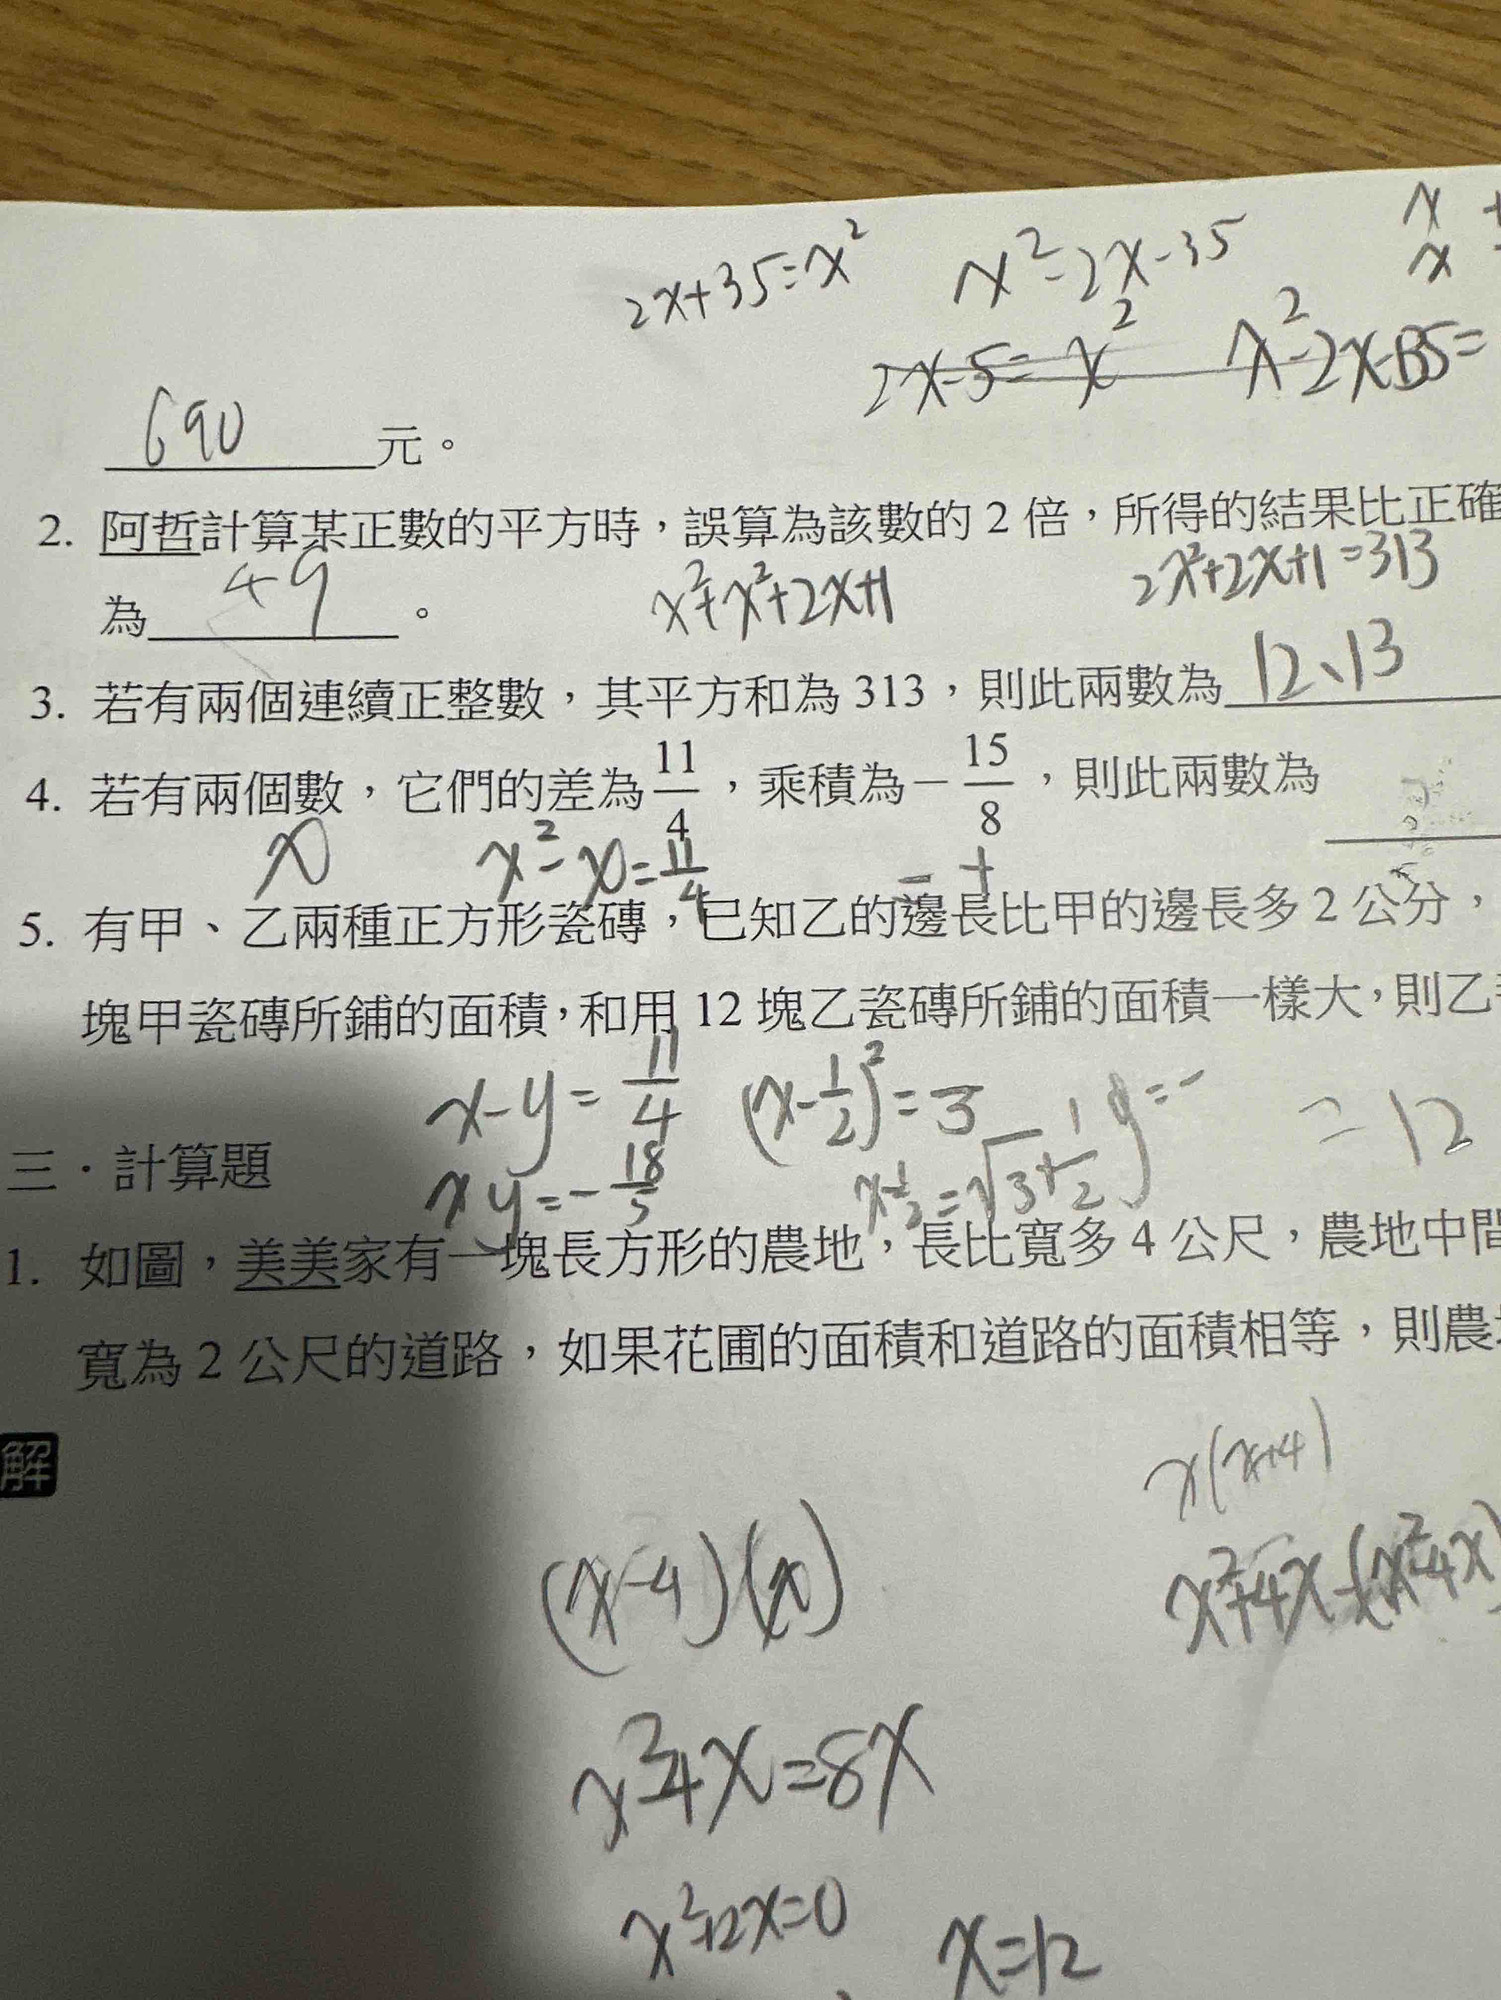 2x+35=x²
x²-2x-35
x
x
2x-5=x²
x²-2x-35=
690 元。
2. 阿哲計算某正數的平方時，誤算為該數的 2 倍，所得的結果比正確
為 49 。
x²+x²+2x+1
2x²+2x+1=313
3. 若有兩個連續正整數，其平方和為 313，則此兩數為 12、13
4. 若有兩個數，它們的差為 11/4，乘積為 -15/8，則此兩數為
x²-x=11/4
- +
5. 有甲、乙兩種正方形瓷磚，已知乙的邊長比甲的邊長多 2 公分，
塊甲瓷磚所鋪的面積，和用 12 塊乙瓷磚所鋪的面積一樣大，則乙
x-y=11/4
(x-1/2)²=3
=12
xy=-18/5
x-1/2=√3+1/2
三．計算題
1. 如圖，美美家有一塊長方形的農地，長比寬多 4 公尺，農地中間
寬為 2 公尺的道路，如果花圃的面積和道路的面積相等，則農
解
x(x+4)
(x-4)(x)
x²+4x-(x²-4x)
x²-4x=8x
x²-12x=0
x=12